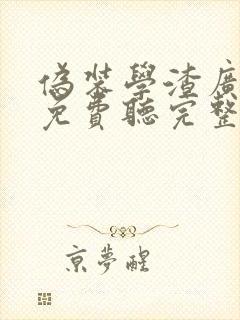 偽裝學渣廣
免費聽完整
京夢醒